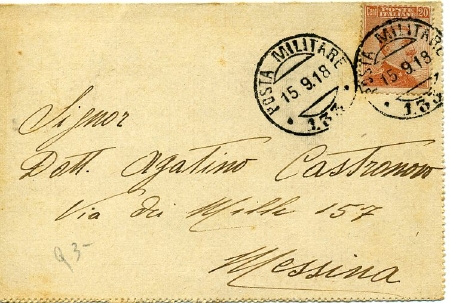 Cent. POSTE 20
ITALIANE
POSTA MILITARE
15.9.18
* 133 *
POSTA MILITARE
15.9.18
* 133
Signor
Dott. Agatino Castronovo
Via dei Mille 157
Messina